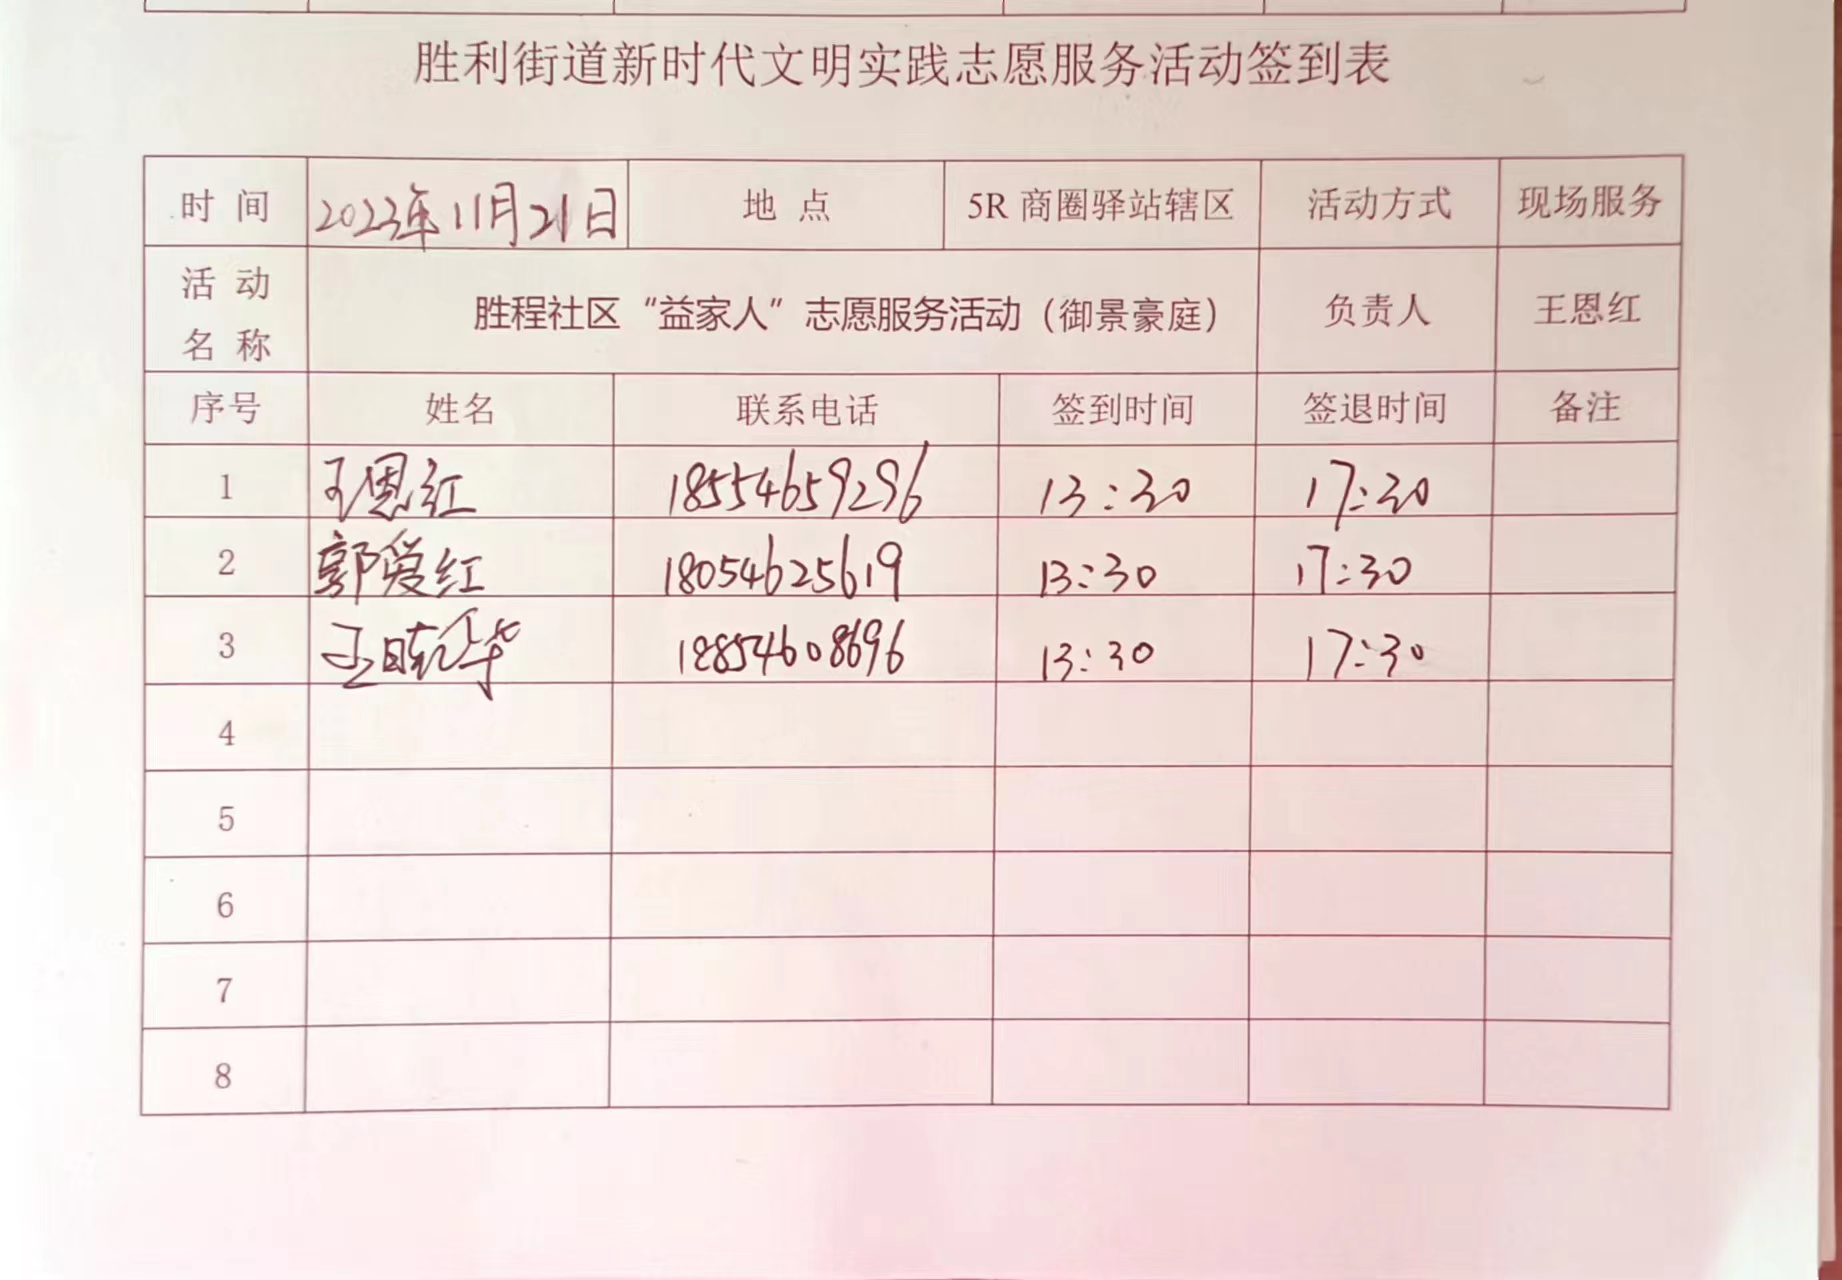 胜利街道新时代文明实践志愿服务活动签到表
时 间 2023年11月21日 地 点 5R 商圈驿站辖区 活动方式 现场服务
活 动
名 称 胜程社区“益家人”志愿服务活动（御景豪庭） 负责人 王恩红
序号 姓名 联系电话 签到时间 签退时间 备注
1 王恩红 18554659296 13:30 17:30
2 郭爱红 18054625619 13:30 17:30
3 王晓华 18854608696 13:30 17:30
4
5
6
7
8